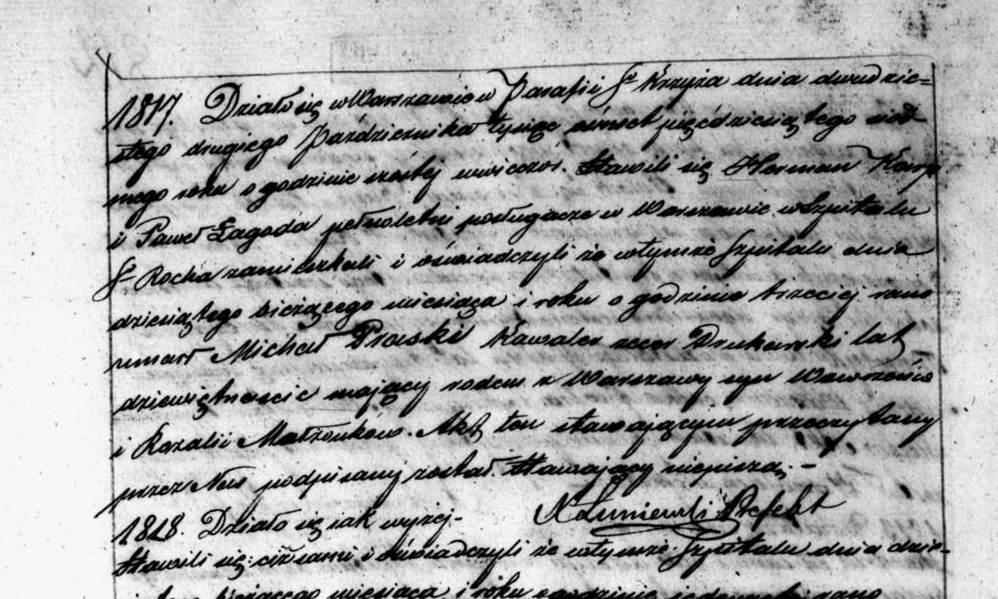 1817. Działo się w Warszawie w Parafii Sgo Krzyża dnia dwudzie=
stego drugiego Października tysiąc ośmset pięćdziesiątego siod
mego roku o godzinie szóstej wieczór. Stawili się Herman Karp
i Paweł Łagoda pełnoletni posługacze w Warszawie w Szpitalu
Sgo Rocha zamieszkali i oświadczyli że w tymże Szpitalu dnia
dziesiątego bieżącego miesiąca i roku o godzinie trzeciej rano
umarł Michał Praski Kawaler uczeń Drukarski lat
dziewiętnaście mający rodem z Warszawy syn Wawrzeńca
i Rozalii Małżonków. Akt ten stawającym przeczytany
przez Nas podpisany został. Stawający niepiszą. –
Łuniewski Prefekt
1818. Działo się jak wyżej-
Stawili się: ciż sami i oświadczyli że w tymże Szpitalu dnia dzie-
bieżącego miesiąca i roku o godzinie jedenastej rano